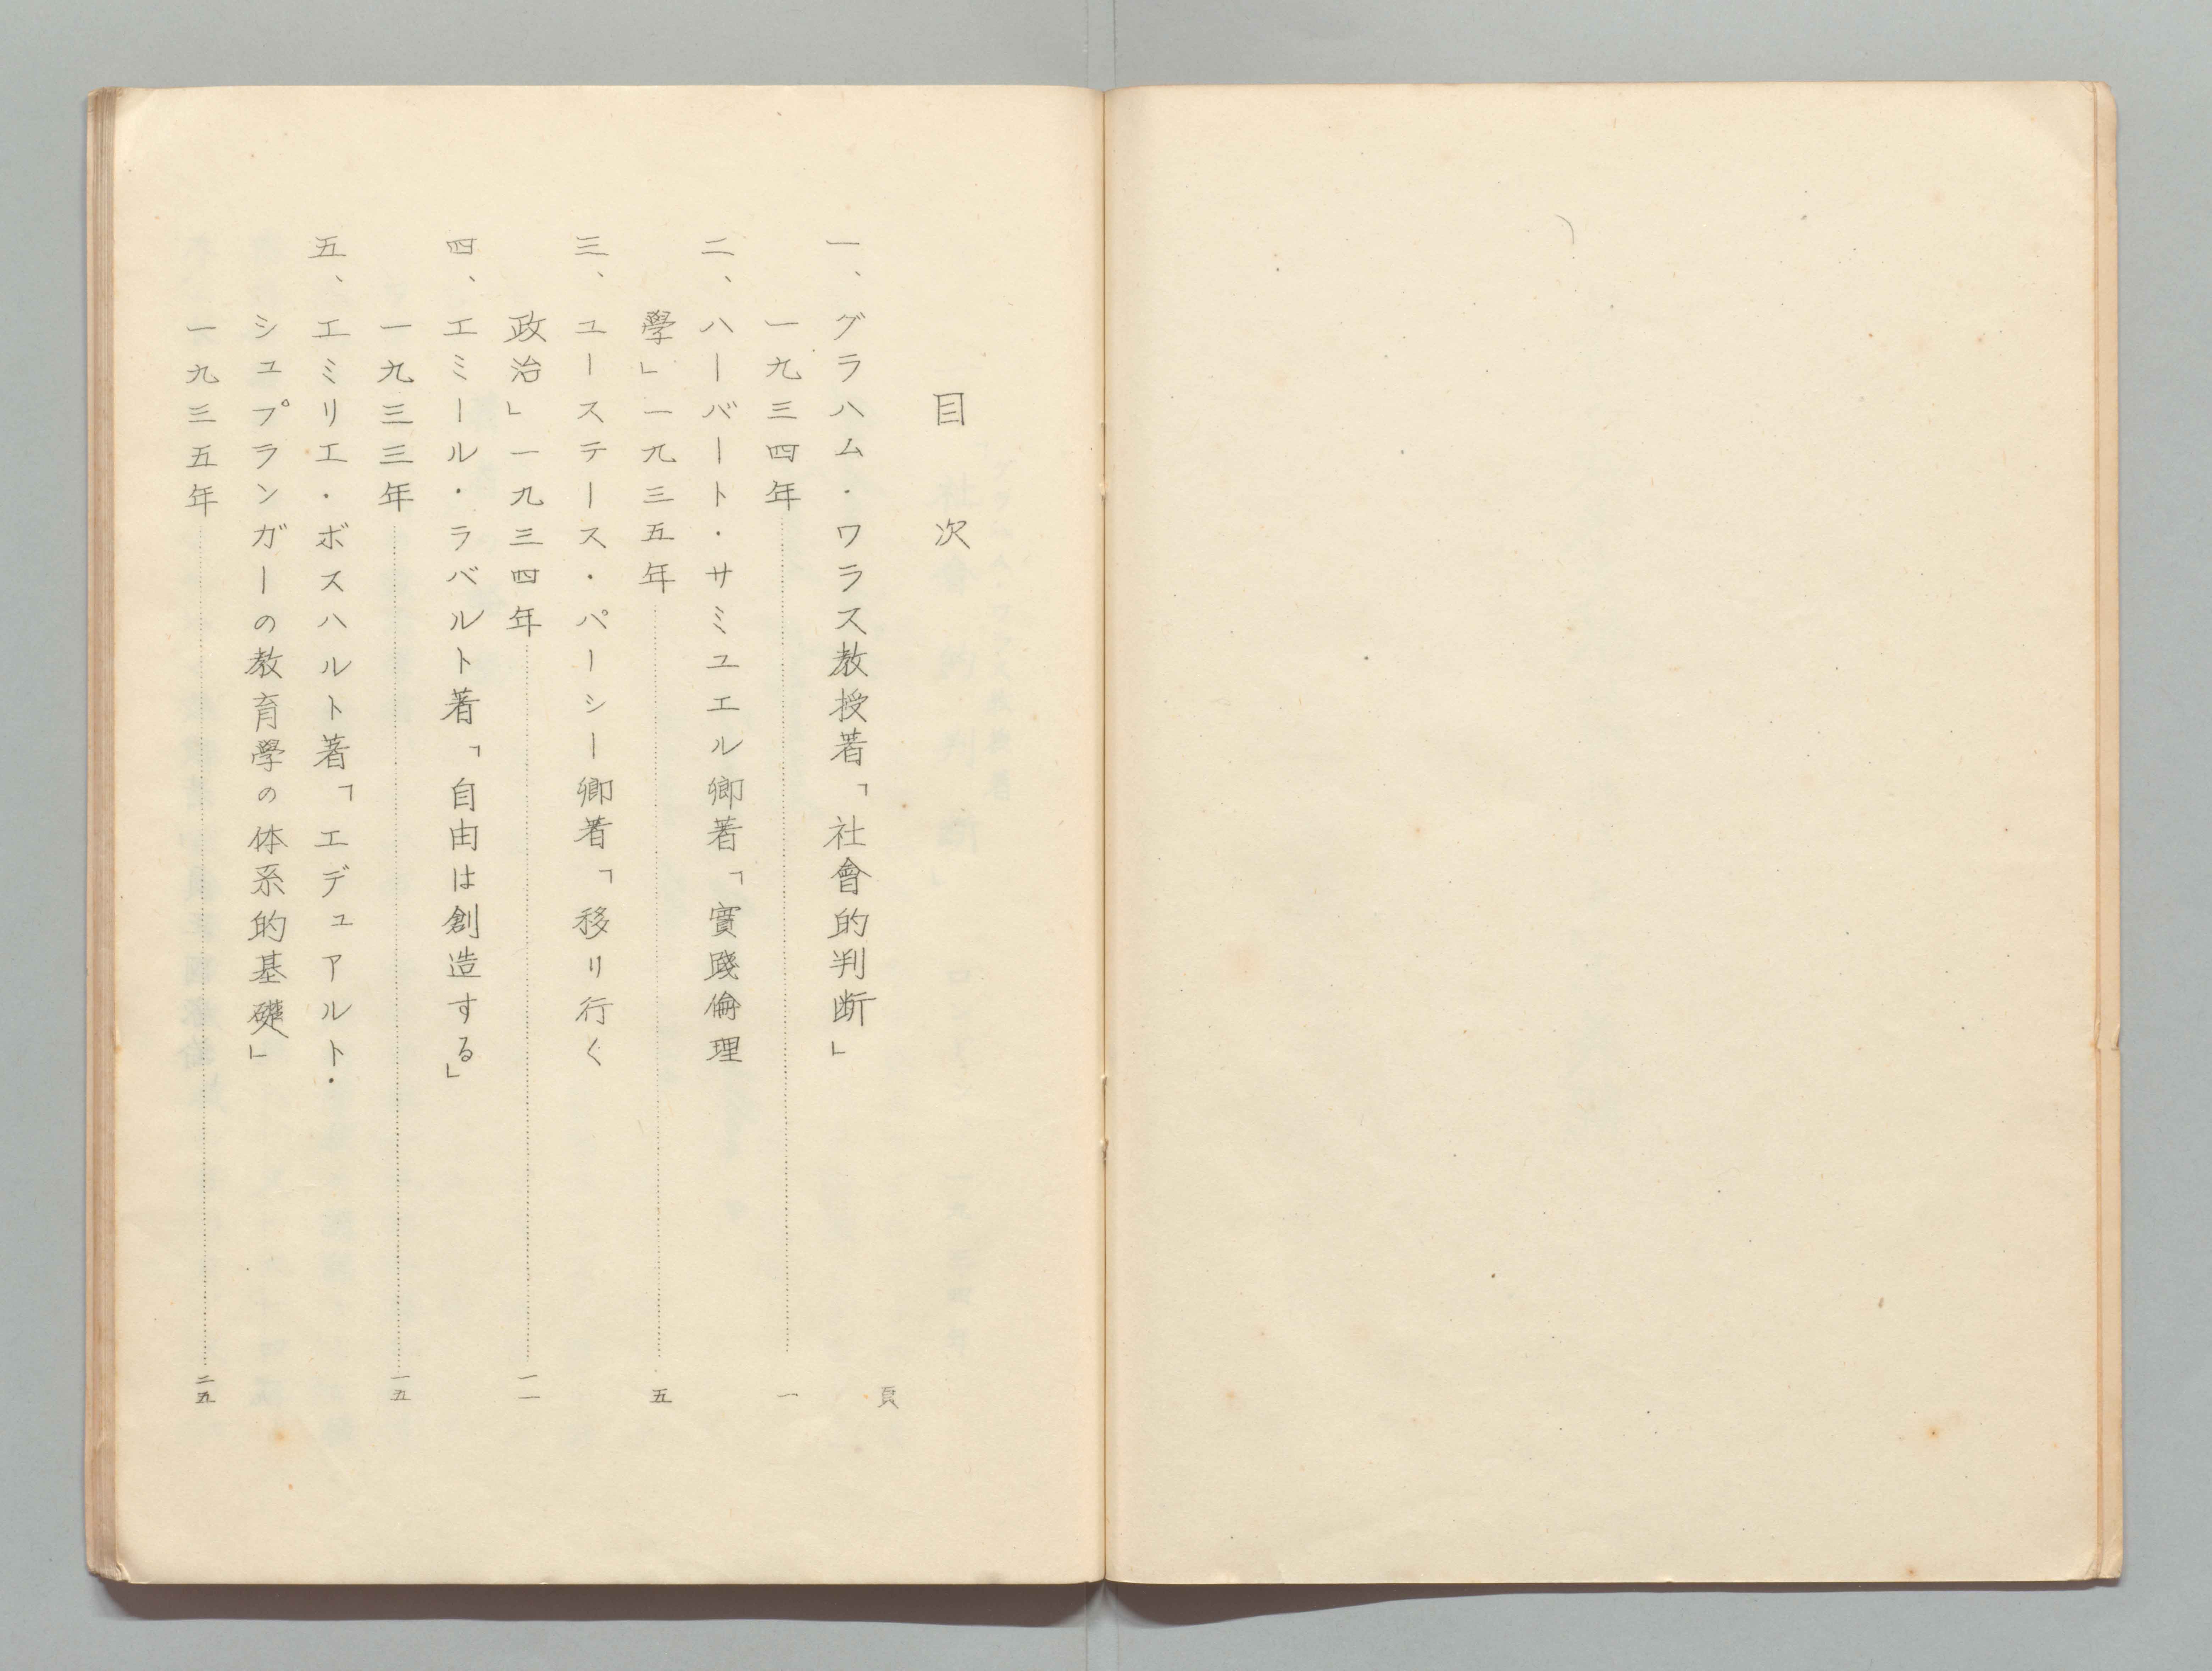 目次
頁
一、グラハム・ワラス教授著「社會的判断」
一九三四年……一
二、ハーバート・サミユエル卿著「實踐倫理
學」一九三五年……五
三、ユーステース・パーシー卿著「移リ行く
政治」一九三四年……一一
四、エミール・ラベルト著「自由は創造する」
一九三三年……一五
五、エミリエ・ボスハルト著「エデュアルト・
シュプランガーの教育學の体系的基礎」
一九三五年……二五